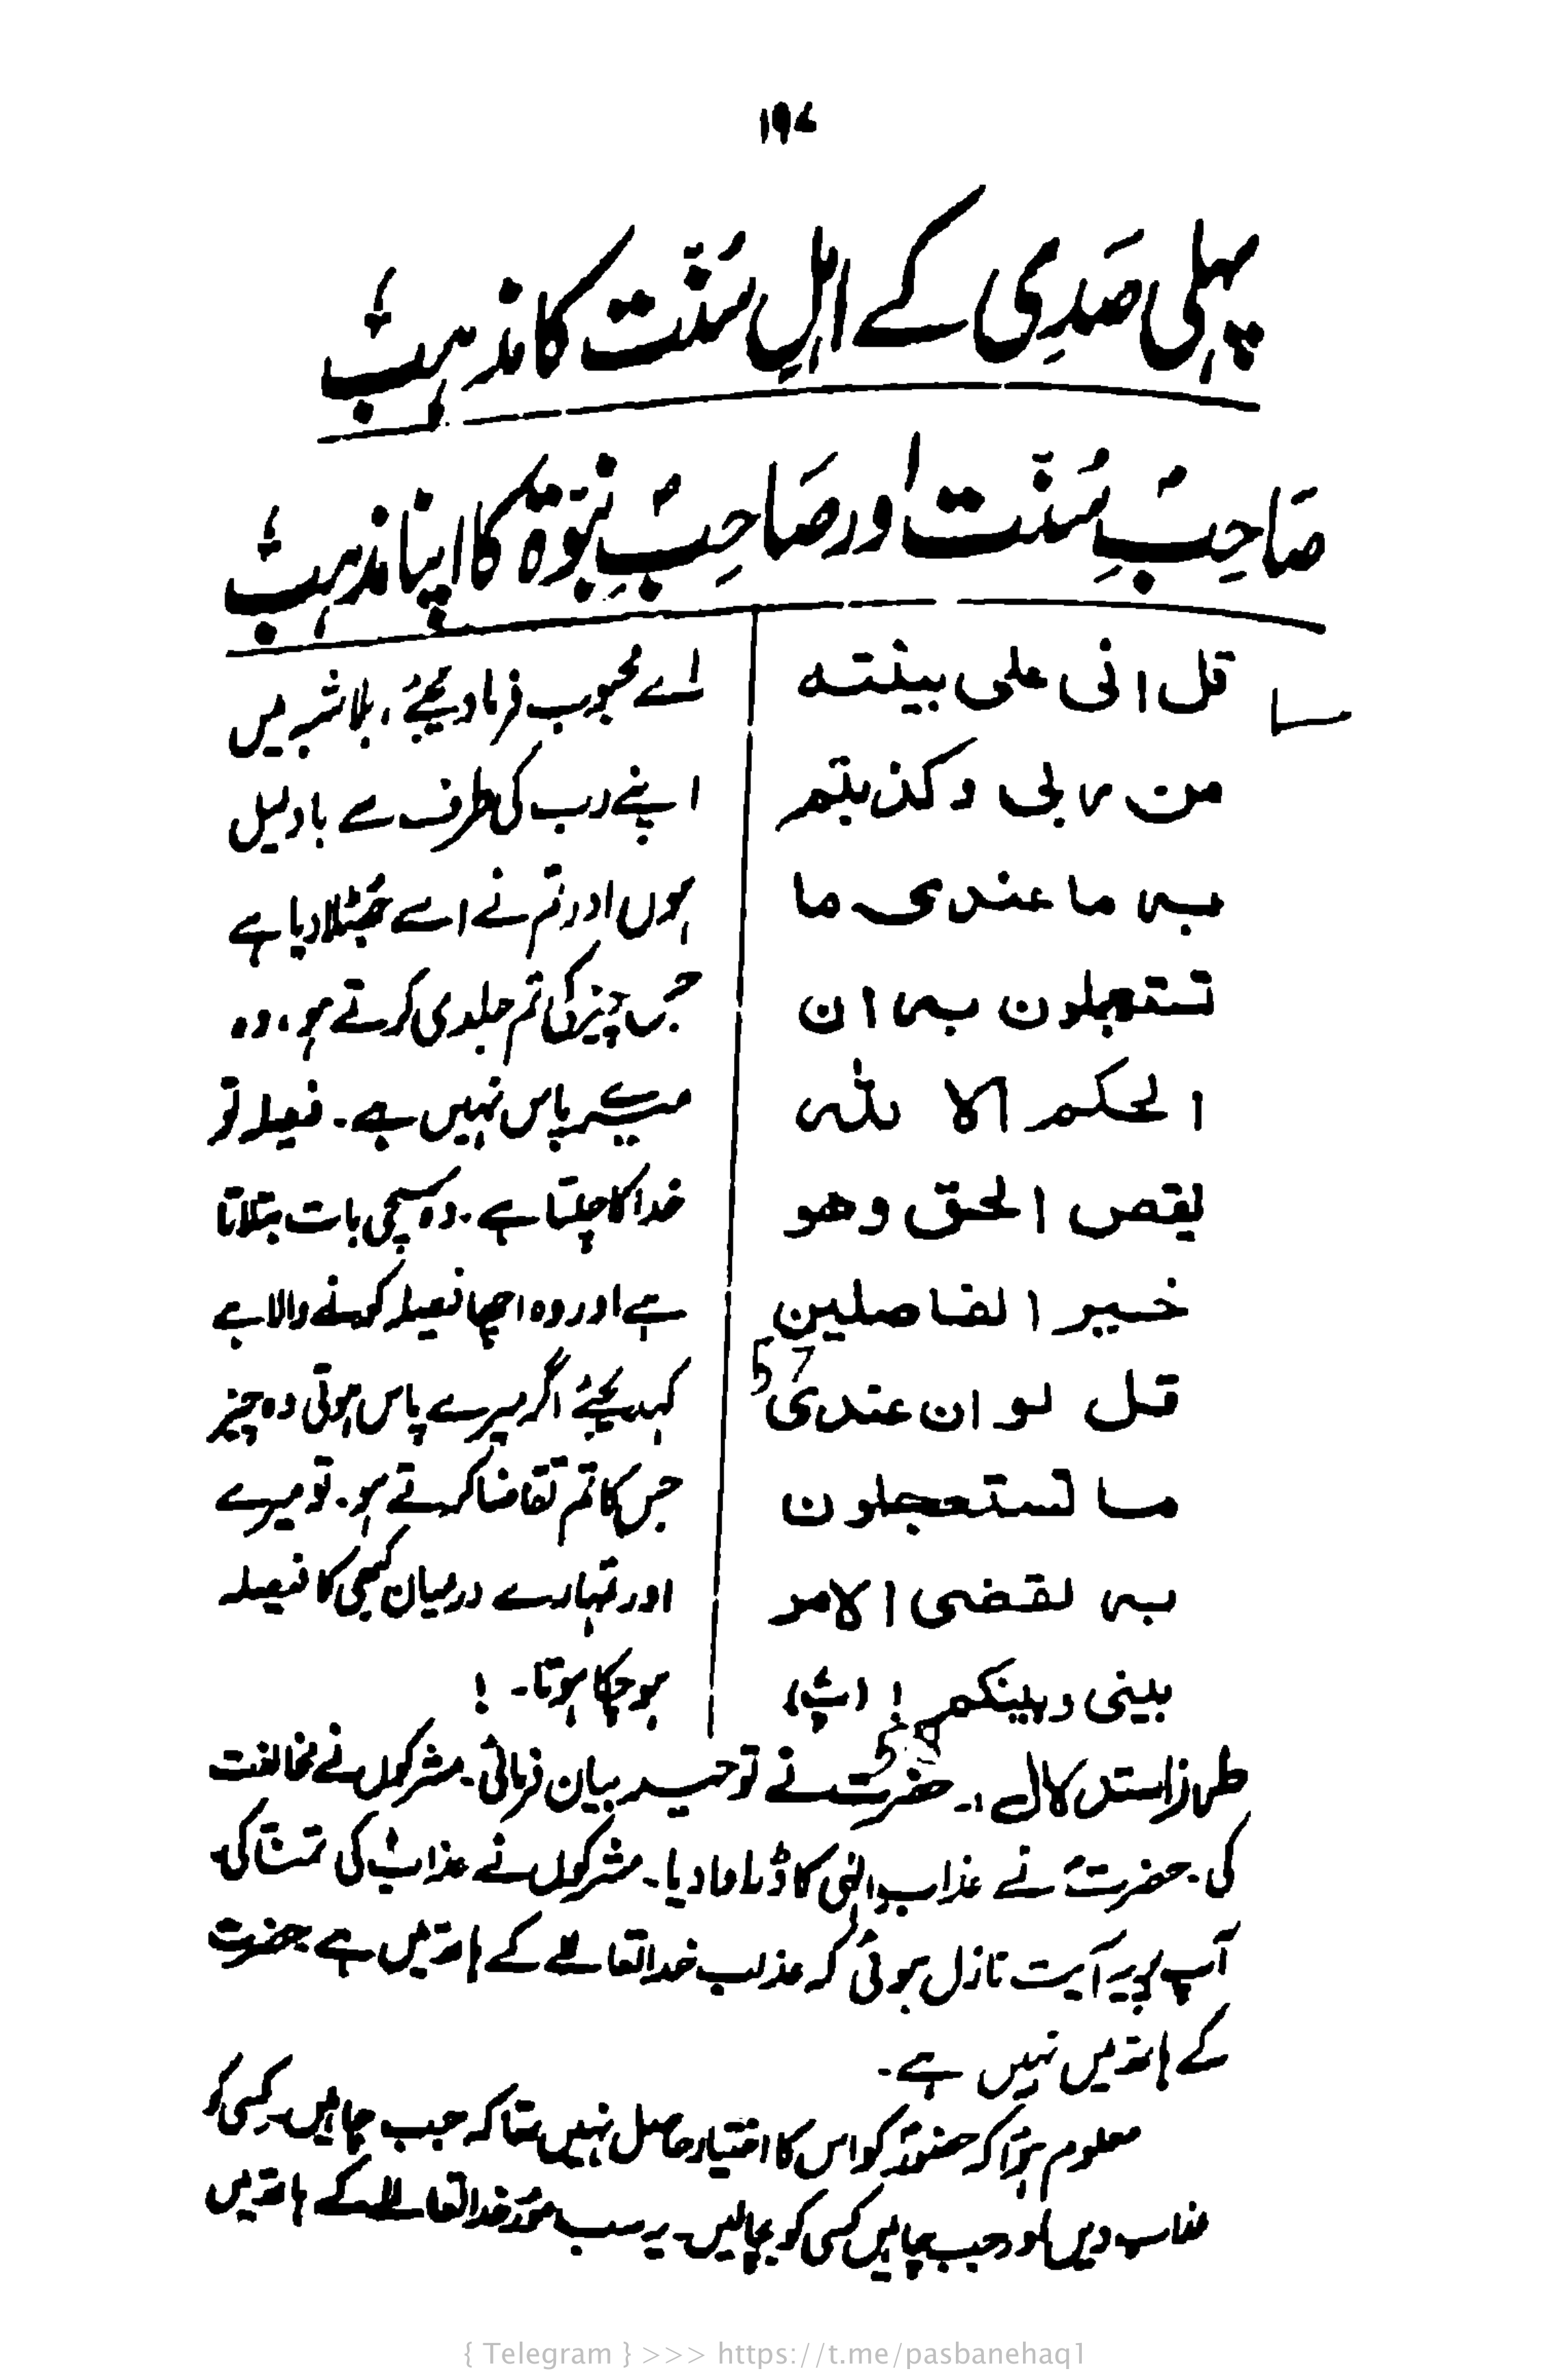 ۱۹۷
پہلی صَدِی کے اہلِ سُنّت کا مذہبؒ
صَاحِبِ سُنّت اور صَاحِبِ نبوّۃ کا اپنا مذہبؒ
قل انی علی بینتہ
من ربی وکذبتم
بہ ما عندی ما
تستعجلون بہ ان
الحکم الا للہ
یقص الحق وھو
خیر الفاصلین
57
قل لو ان عندی
ما تستعجلون
بہ لقضی الامر
بینی وبینکم ! (پ)
58
اے محبوب فرما دیجئے، بلاشبہ میں
اپنے رب کی طرف سے بادلیل
ہوں اور تم نے اسے جھٹلا دیا ہے
جس چیز کی تم جلدی کرتے ہو، وہ
میرے پاس نہیں ہے۔ فیصلہ تو
خدا کا چلتا ہے۔ وہ سچی بات بتلاتا
ہے اور وہ اچھا فیصلہ کرنے والا ہے
کہدیجئے اگر میرے پاس ہوتی وہ چیز
جس کا تم تقاضا کرتے ہو۔ تو میرے
اور تمہارے درمیان کبھی کا فیصلہ
ہو چکا ہوتا۔ !
طرز استدلال :۔ حضرت نے توحید بیان فرمائی۔ مشرکوں نے مخالفت
کی۔ حضرتؐ نے عذاب الٰہی کا ڈراوا دیا۔ مشرکوں نے عذاب کی تمنا کی۔
آپ پر یہ آیت نازل ہوئی کہ عذاب خدا تعالےٰ کے ہاتھ میں ہے حضرت
کے ہاتھ میں نہیں ہے۔
معلوم ہوا کہ حضورؐ کو اس کا اختیار حاصل نہیں تھا کہ جب چاہیں کسی کو
عذاب دیں اور جب چاہیں کسی کو بچالیں۔ یہ سب امور خدا تعالےٰ کے ہاتھ میں
{ Telegram } >>> https://t.me/pasbanehaq1